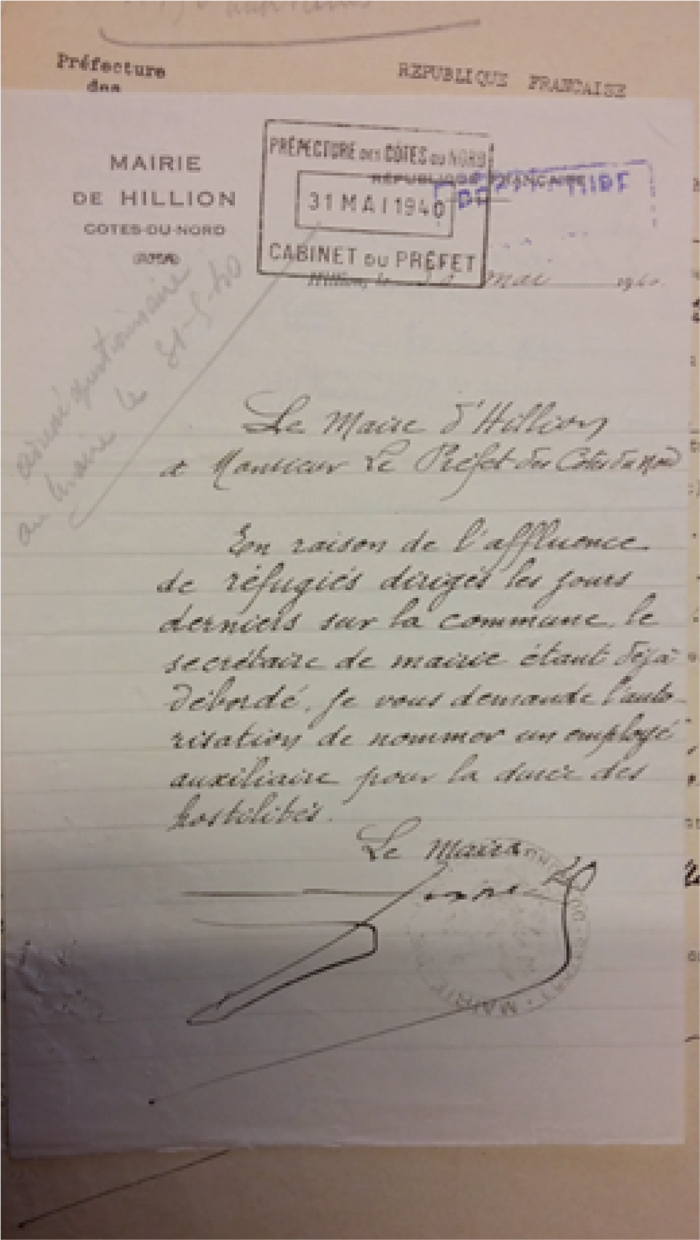 Préfecture
des
REPUBLIQUE FRANCAISE
MAIRIE
DE HILLION
COTES-DU-NORD
PRÉFECTURE DES CÔTES DU NORD
31 MAI 1940
CABINET DU PRÉFET
RÉPUBLIQUE FRANÇAISE
Hillion, le 30 mai 1940
questionnaire
au Maire le 31-5-40
Le Maire d'Hillion
a Monsieur Le Préfet des Cotes du Nord
En raison de l'affluence
de réfugiés dirigés les jours
derniers sur la commune, le
secrétaire de mairie étant déjà
débordé, je vous demande l'auto-
risation de nommer un employé
auxiliaire pour la durée des
hostilités.
Le Maire